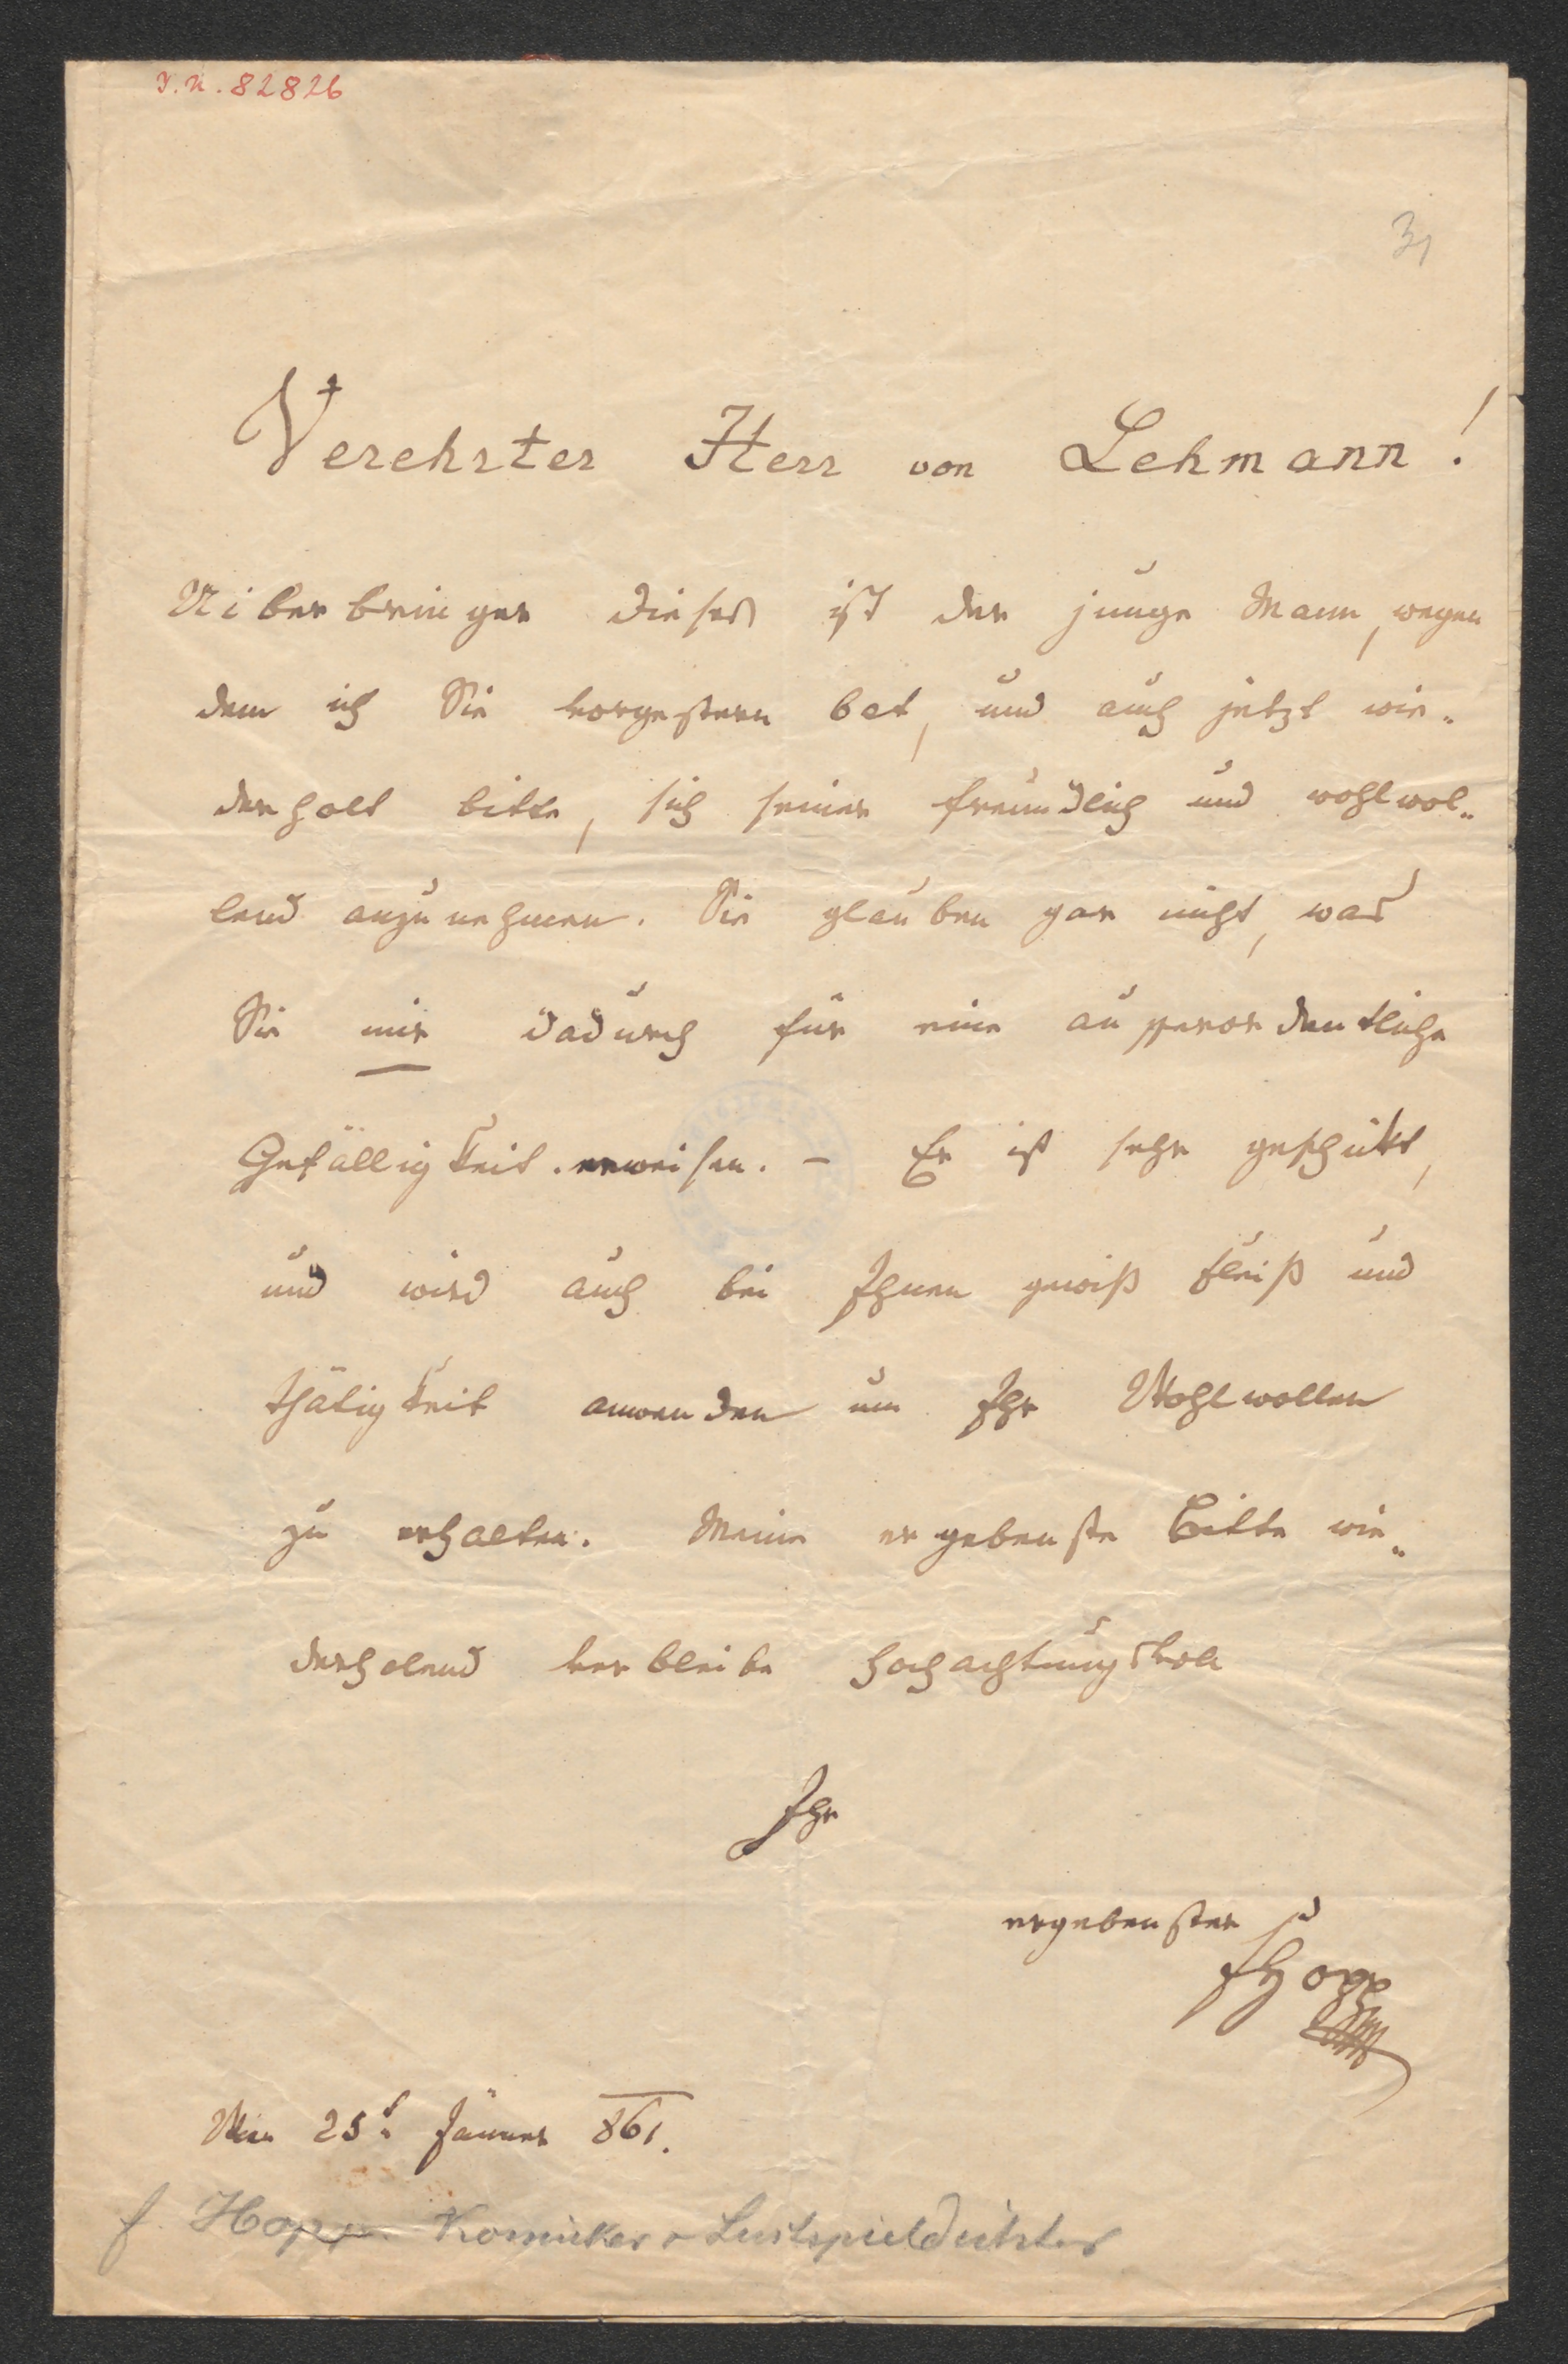 I. N. 82826
31
Verehrter Herr von Lehmann!
Uiberbringer dieses ist der junge Mann, wegen
dem ich Sie vorgestern bat, und auch jetzt wie-
derholt bitte, sich seiner freundlich und wohlwol-
lend anzunehmen. Sie glauben gar nicht, was
Sie mir dadurch für eine ausserordentliche
Gefälligkeit erweisen. – Er ist sehr geschikt,
und wird auch bei Ihnen gewiß Fleiß und
Thätigkeit anwenden um Ihr Wohlwollen
zu erhalten. Meine ergebenste Bitte wie-
derholend verbleibe hochachtungsvoll
Ihr
ergebenster
FHopp
Wien 25t Jänner 861.
F. Hopp Komiker u Lustspieldichter